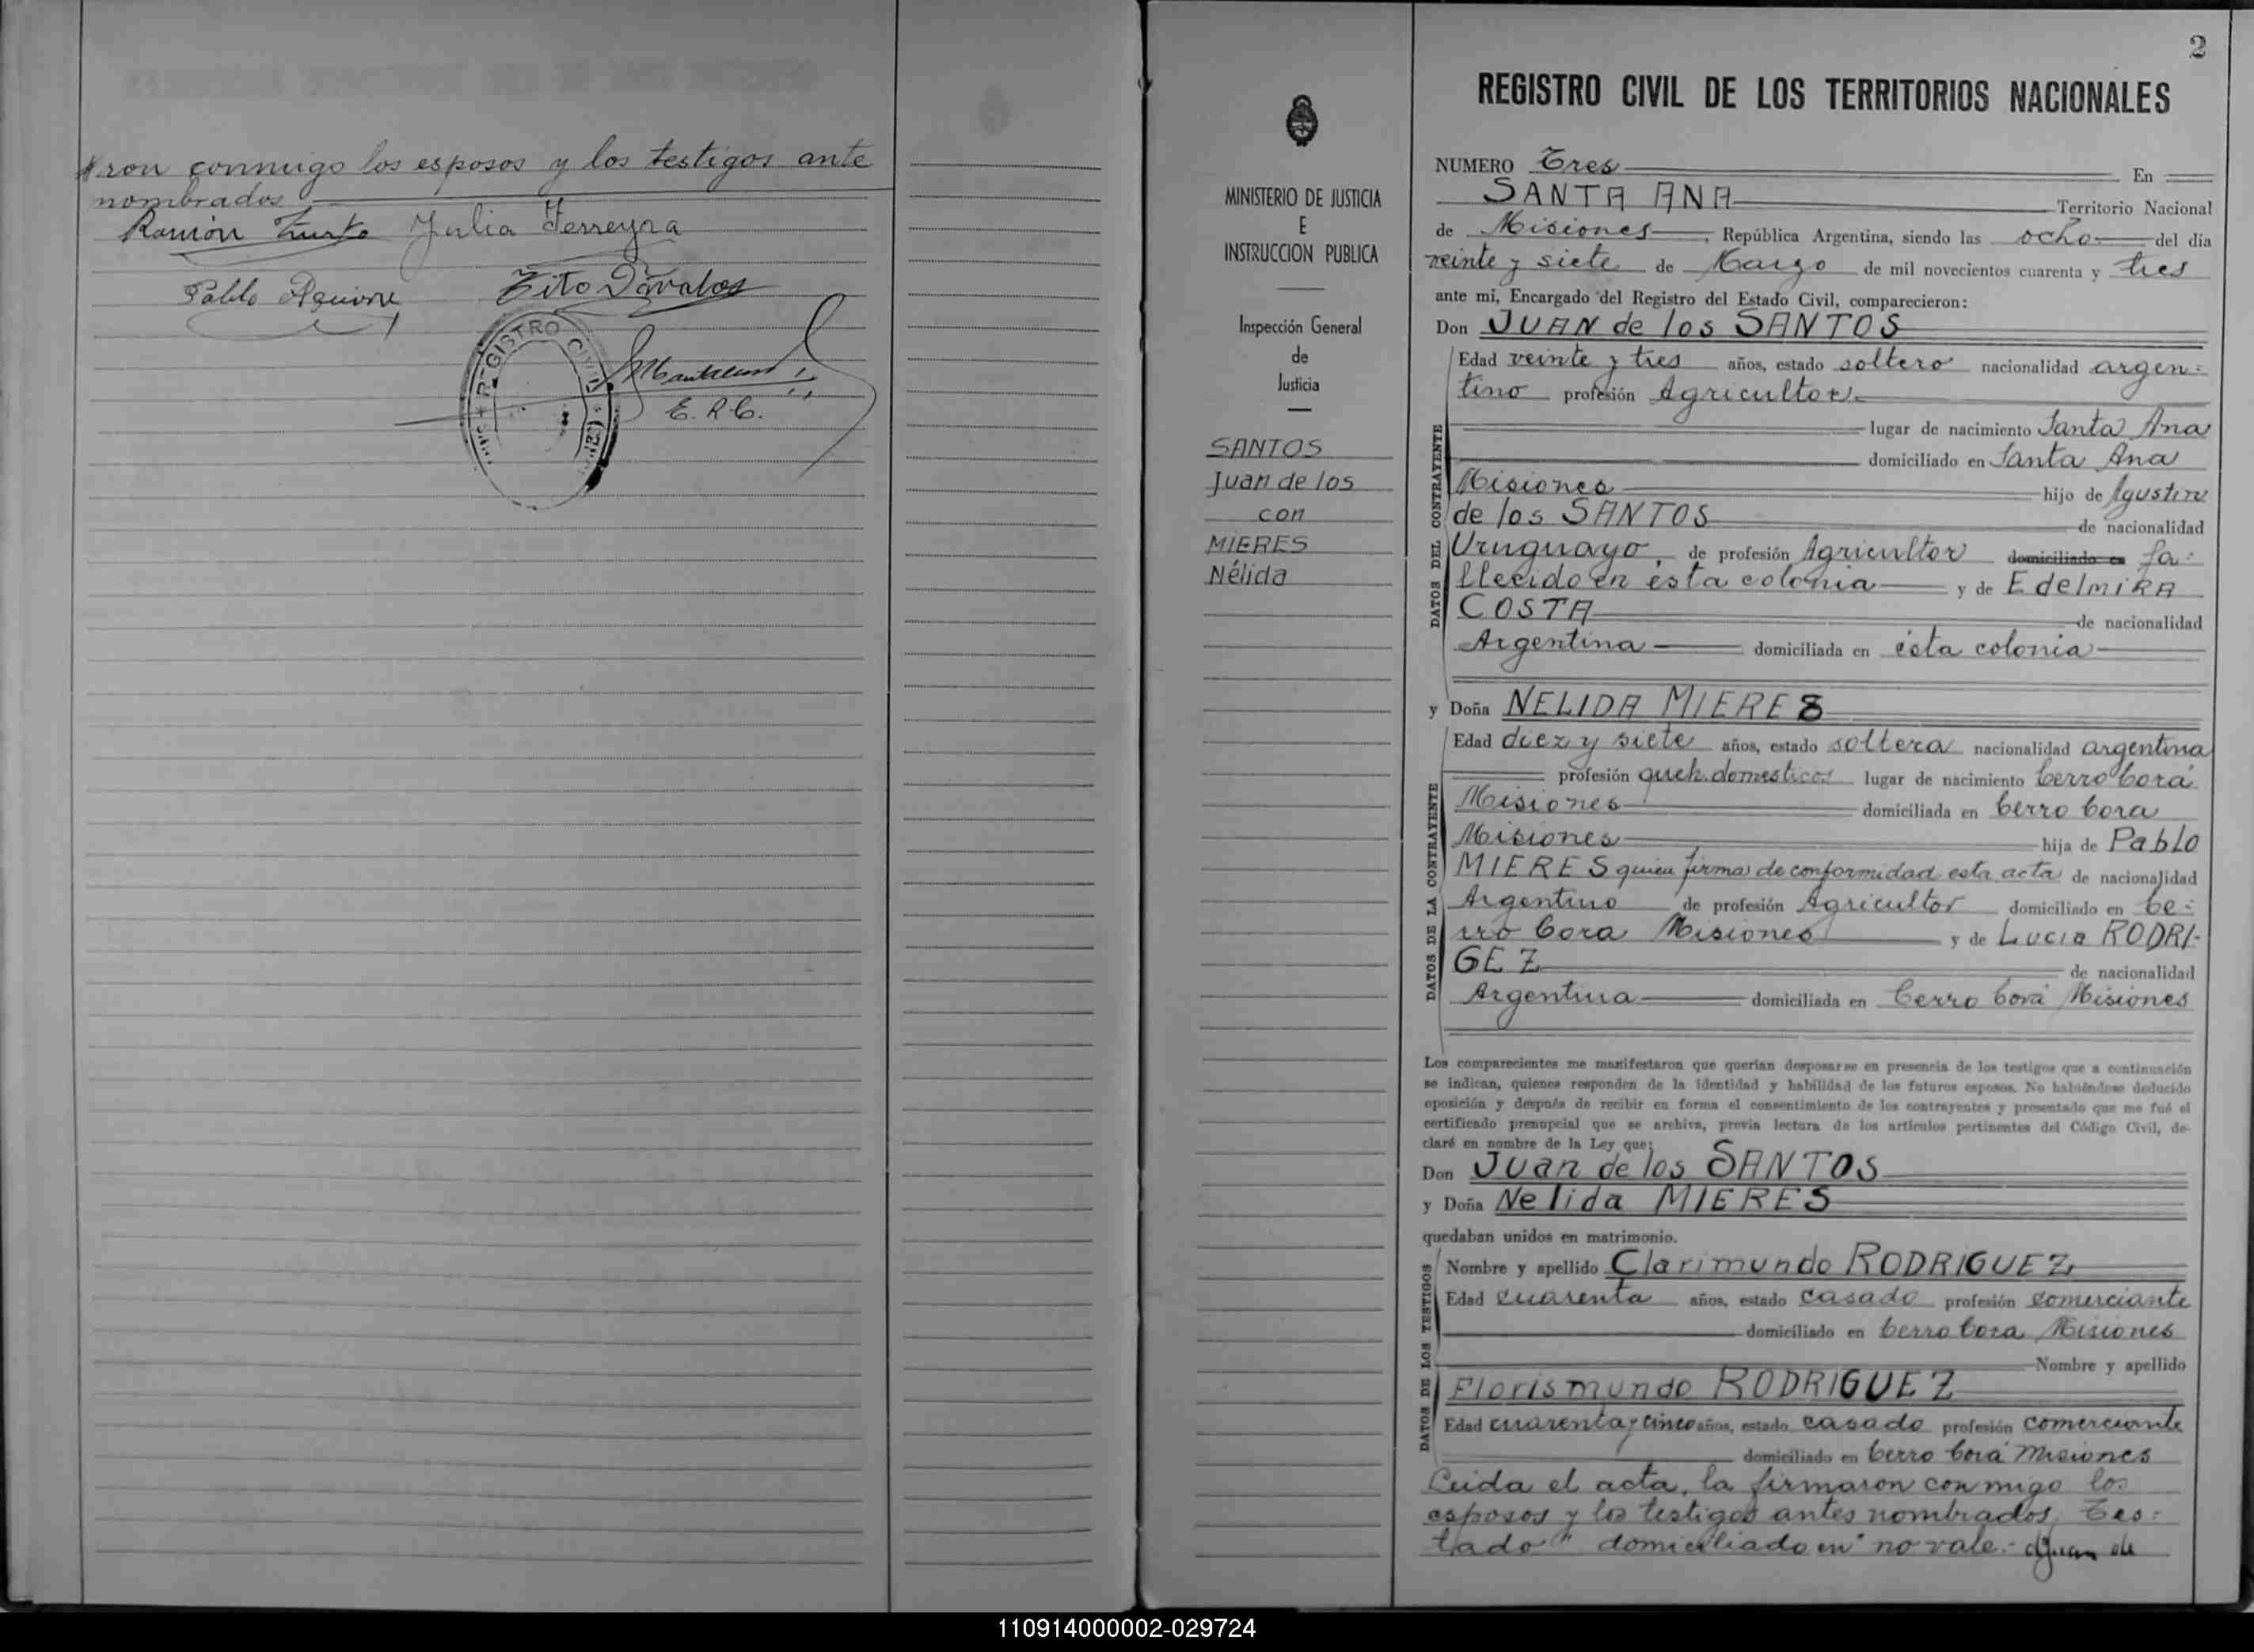 ron conmigo los esposos y los testigos ante
nombrados
Ramón Julia Ferreyra
Pablo Aguirre Tito Dávalos
REGISTRO CIVIL
E. R. C.
2
REGISTRO CIVIL DE LOS TERRITORIOS NACIONALES
MINISTERIO DE JUSTICIA
E
INSTRUCCION PUBLICA
Inspección General
de
Justicia
SANTOS
Juan de los
con
MIERES
Nélida
NUMERO Tres En
SANTA ANA Territorio Nacional
de Misiones, República Argentina, siendo las ocho del día
veinte y siete de Marzo de mil novecientos cuarenta y tres
ante mí, Encargado del Registro del Estado Civil, comparecieron:
Don JUAN de los SANTOS
DATOS DEL CONTRAYENTE
Edad veinte y tres años, estado soltero nacionalidad argen-
tino profesión Agricultor
lugar de nacimiento Santa Ana
domiciliado en Santa Ana
Misiones hijo de Agustin
de los SANTOS de nacionalidad
Uruguayo, de profesión Agricultor domiciliado en fa-
llecido en ésta colonia y de EdelmiRA
COSTA de nacionalidad
Argentina domiciliada en ésta colonia
y Doña NELIDA MIERES
DATOS DE LA CONTRAYENTE
Edad diez y siete años, estado soltera nacionalidad argentina
profesión queh. domesticos lugar de nacimiento Cerro Corá
Misiones domiciliada en Cerro Cora
Misiones hija de Pablo
MIERES quien firma de conformidad esta acta de nacionalidad
Argentino de profesión Agricultor domiciliado en Ce-
rro Cora Misiones y de Lucia RODRI-
GEZ de nacionalidad
Argentina domiciliada en Cerro Corá Misiones
Los comparecientes me manifestaron que querían desposarse en presencia de los testigos que a continuación
se indican, quienes responden de la identidad y habilidad de los futuros esposos. No habiéndose deducido
oposición y después de recibir en forma el consentimiento de los contrayentes y presentado que me fué el
certificado prenupcial que se archiva, previa lectura de los artículos pertinentes del Código Civil, de-
claré en nombre de la Ley que:
Don Juan de los SANTOS
y Doña Nelida MIERES
quedaban unidos en matrimonio.
DATOS DE LOS TESTIGOS
Nombre y apellido Clarimundo RODRIGUEZ
Edad cuarenta años, estado casado profesión comerciante
domiciliado en Cerro Cora Misiones
Nombre y apellido
Florismundo RODRIGUEZ
Edad cuarenta y cinco años, estado casado profesión comerciante
domiciliado en Cerro Corá Misiones
Leida el acta, la firmaron conmigo los
esposos y los testigos antes nombrados. Tes-
tado "domiciliado en" no vale.- Juan de
110914000002-029724